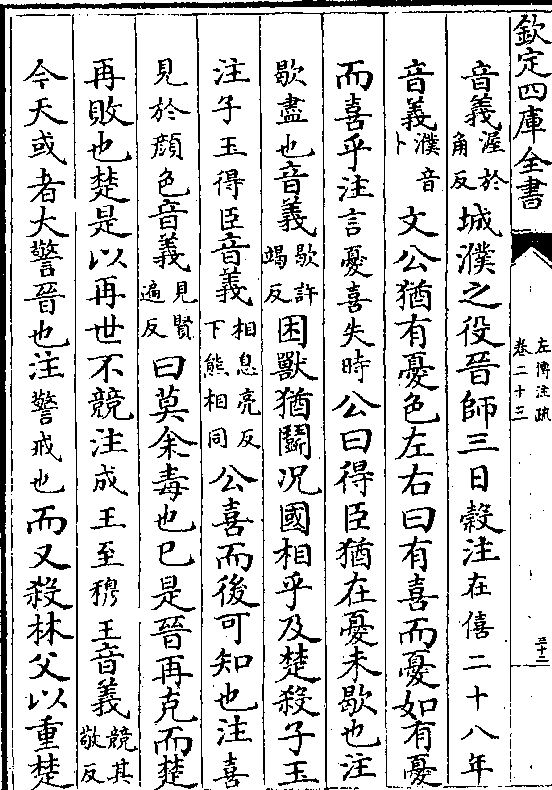 欽定四庫全書
左傳注疏
卷二十三
三十二
音義渥於角反城濮之役晉師三日穀注在僖二十八年
音義濮音卜文公猶有憂色左右曰有喜而憂如有憂
而喜乎注言憂喜失時公曰得臣猶在憂未歇也注
歇盡也音義歇許竭反困獸猶鬭況國相乎及楚殺子玉
注子玉得臣音義相息亮反下熊相同公喜而後可知也注喜
見於顔色音義見賢遍反曰莫余毒也已是晉再克而楚
再敗也楚是以再世不競注成王至穆王音義競其敬反
今天或者大警晉也注警戒也而又殺林父以重楚